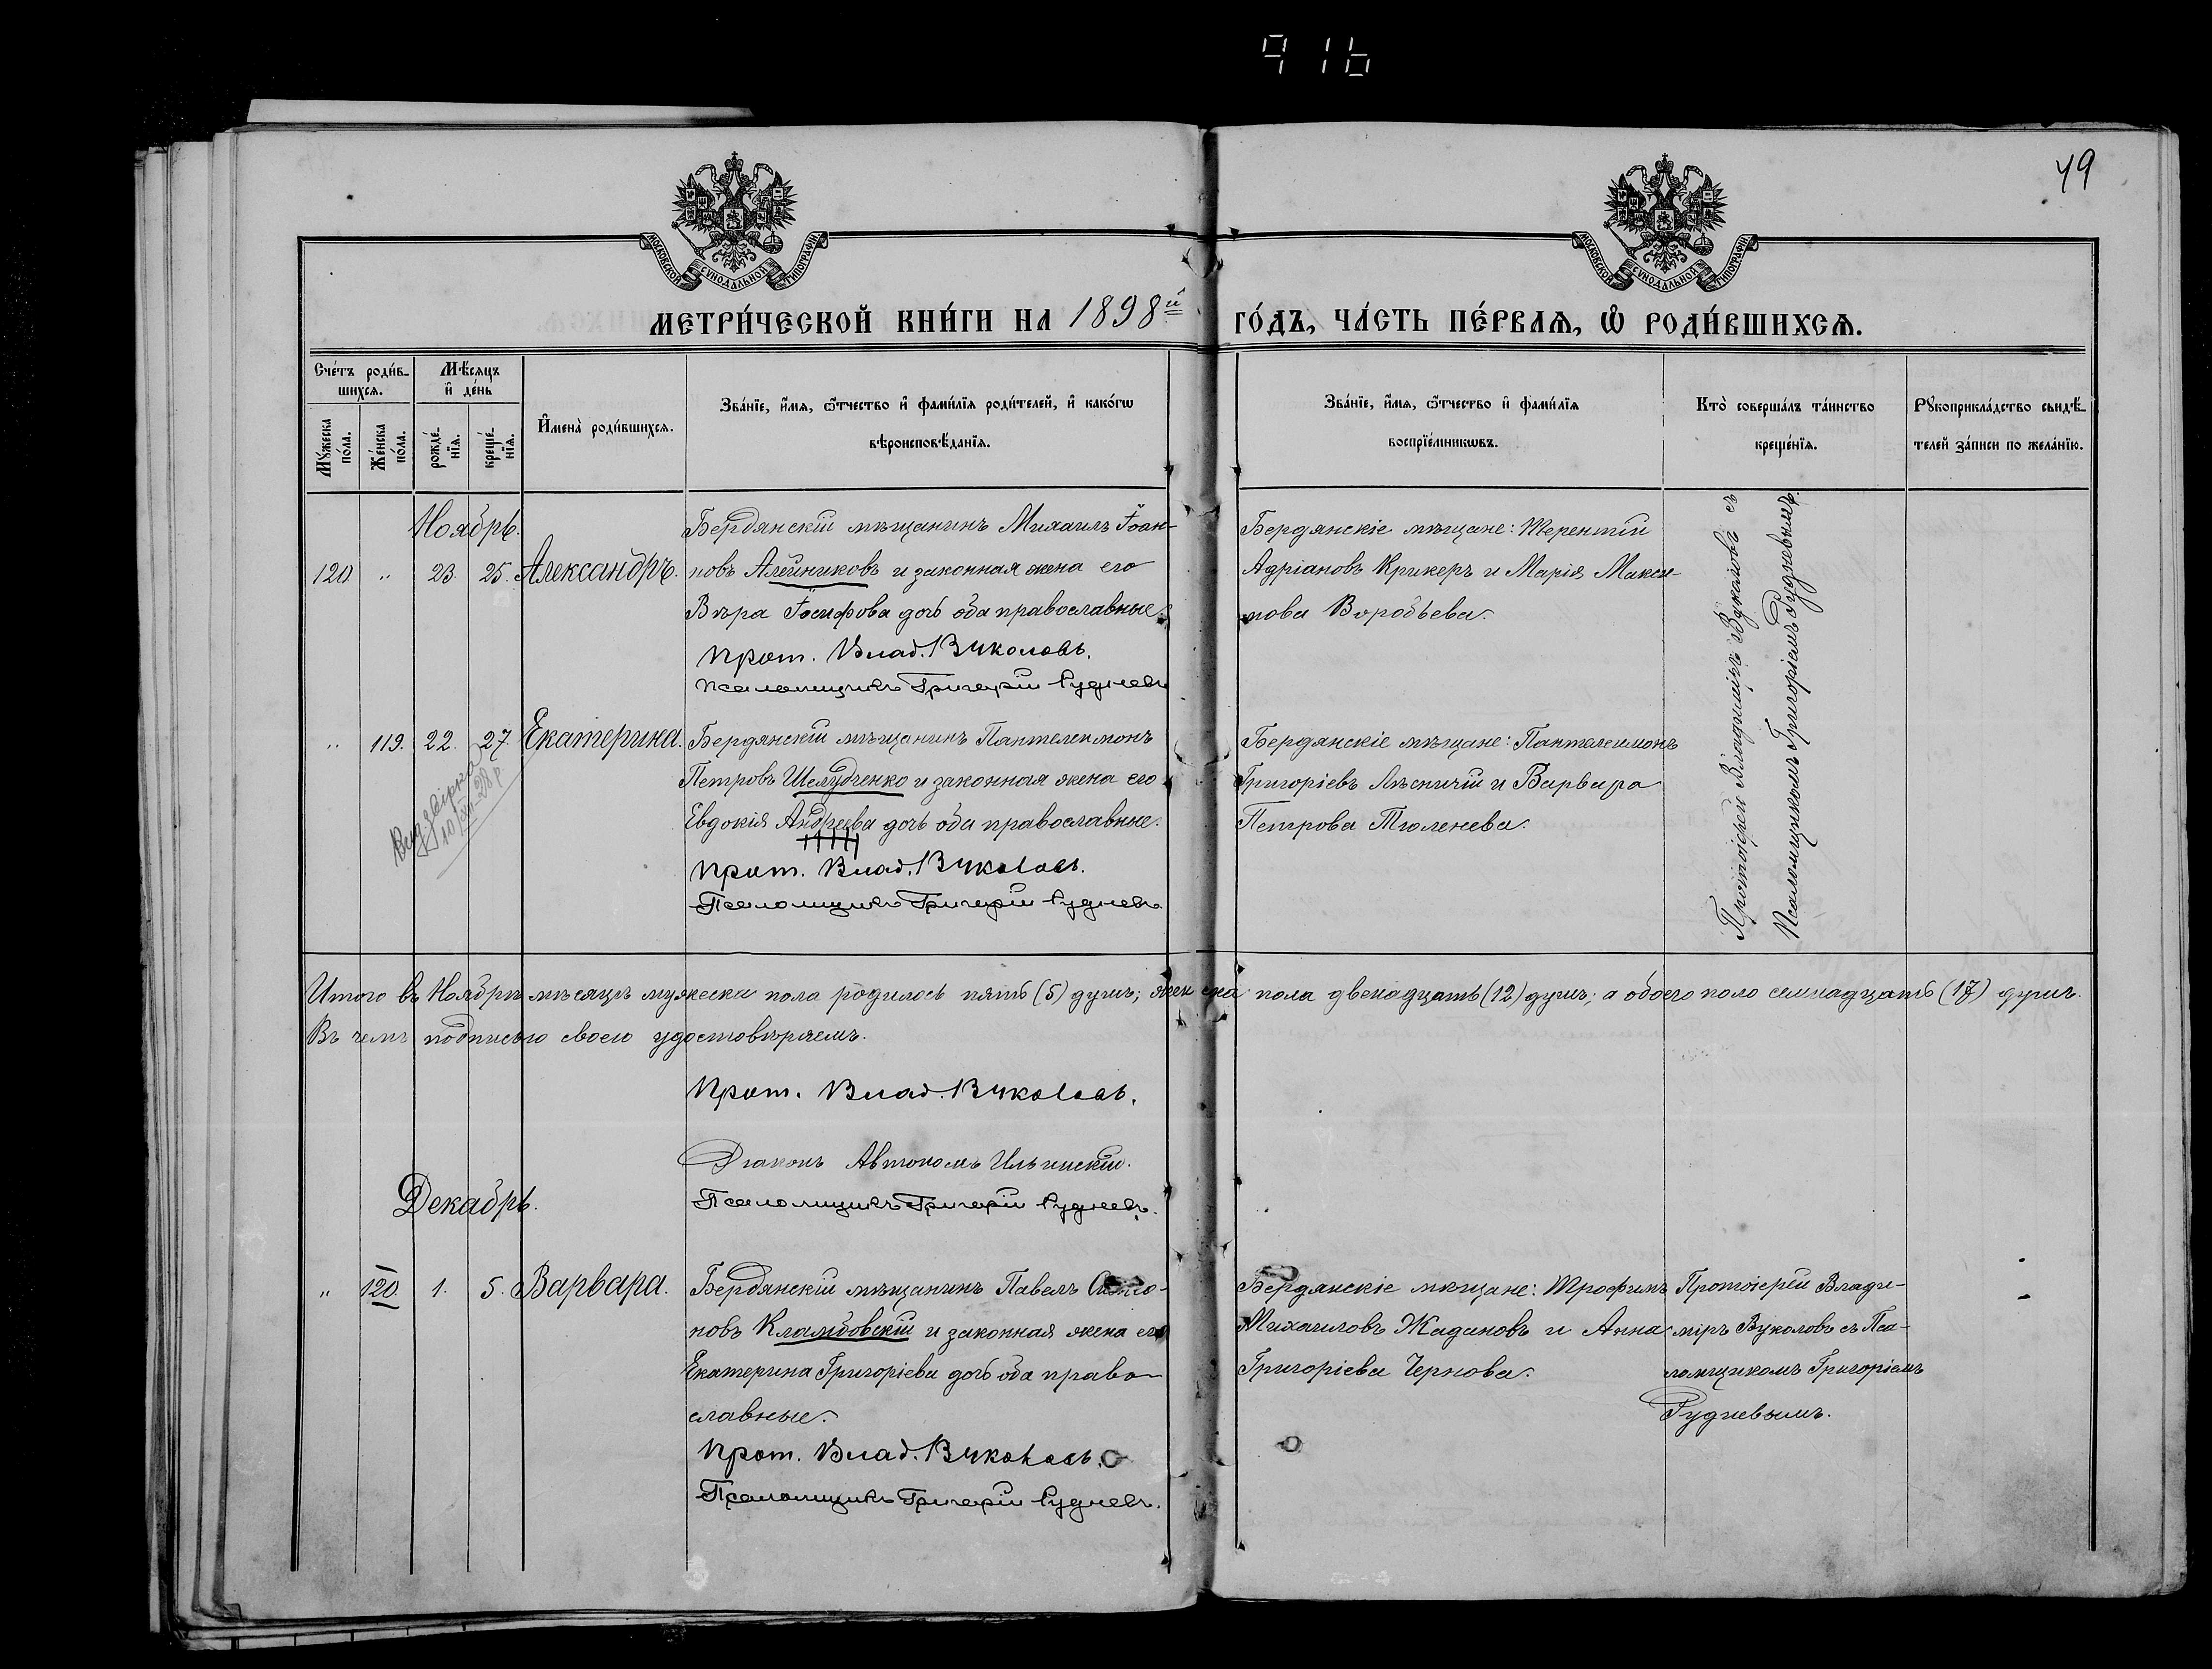 916
49
МОСКОВСКОЙ СѴНОДАЛЬНОЙ ТИПОГРАФІИ
МОСКОВСКОЙ СѴНОДАЛЬНОЙ ТИПОГРАФІИ
МЕТРИ́ЧЕСКОЙ КНИ́ГИ НА 1898й ГО́ДЪ, ЧА́СТЬ ПЕ́РВАѦ, Ѽ РОДИ́ВШИХСѦ.
Сче́тъ роди́в-
шихсѧ.
Мꙋ́жеска по́ла.
Же́нска по́ла.
Мѣ́сѧцъ
и҆ де́нь
рожде́-
нїѧ.
креще́-
нїѧ.
И҆мена̀ роди́вшихсѧ.
Зва́нїе, и҆́мѧ, ѻ҆́тчество и҆ фами́лїѧ роди́телей, и҆ како́гѡ
вѣроисповѣ́данїѧ.
Зва́нїе, и҆́мѧ, ѻ҆́тчество и҆ фами́лїѧ
воспрїе́мникѡвъ.
Кто̀ соверша́лъ та́инство
креще́нїѧ.
Рꙋкоприкла́дство свидѣ́-
телей за́писи по жела́нїю.
Ноябрь.
120 " 23. 25. Александръ.
Бердянскій мѣщанинъ Михаилъ Іоан-
новъ Алейниковъ и законная жена его
Вѣра Іосифова дочь оба православные.
Прот. Влад. Вуколовъ.
Псаломщикъ Григорій Рудневъ
Бердянскіе мѣщане: Терентій
Адріановъ Крикеръ и Марія Макси-
мова Воробьева.
Протоіерей Владиміръ Вуколовъ съ
Псаломщикомъ Григоріемъ Рудневымъ.
" 119. 22. 27. Екатерина.
10/VIII-28 р
Бердянскій мѣщанинъ Пантелеимонъ
Петровъ Шелудченко и законная жена его
Евдокія Андреева дочь оба православные.
Прот. Влад. Вуколовъ.
Псаломщикъ Григорій Рудневъ.
Бердянскіе мѣщане: Пантелеимонъ
Григоріевъ Лѣсничій и Варвара
Петрова Тюленева.
Итого въ Ноябрѣ мѣсяцѣ мужеска пола родилось пять (5) душъ; женска пола двенадцать (12) душъ; а обоего пола семнадцать (17) душъ.
Въ чемъ подписью своею удостовѣряемъ.
Прот. Влад. Вуколовъ.
Діаконъ Автономъ Ильинскій.
Псаломщикъ Григорій Рудневъ.
Декабрь.
" 120. 1. 5. Варвара.
Бердянскій мѣщанинъ Павелъ
новъ Кламбовскій и законная жена его
Екатерина Григоріева дочь оба право-
славные.
Прот. Влад. Вуколовъ.
Псаломщикъ Григорій Рудневъ.
Бердянскіе мѣщане: Трофимъ
Михаиловъ Жадановъ и Анна
Григоріева Чернова.
Протоіерей Влади-
міръ Вуколовъ съ Пса-
ломщикомъ Григоріемъ
Рудневымъ.